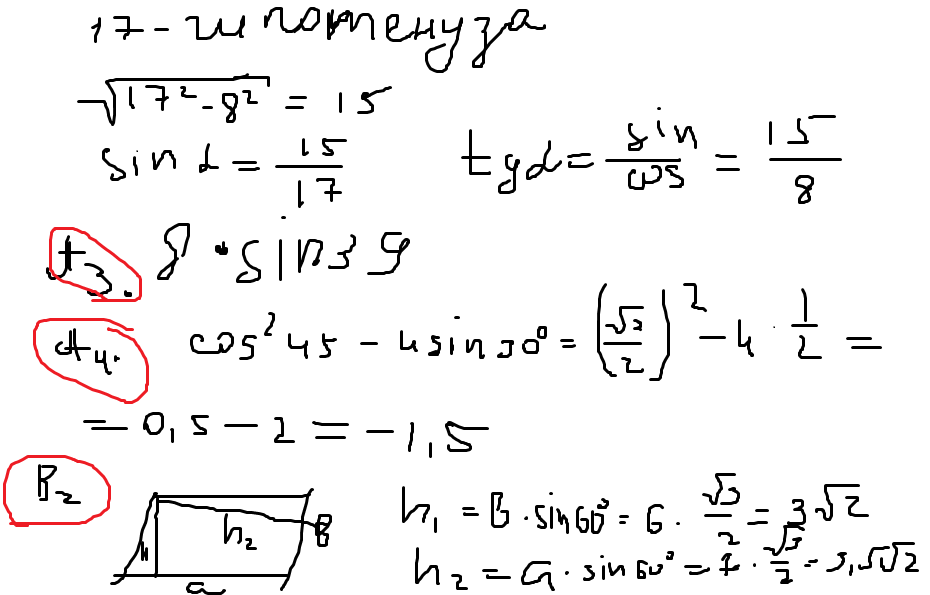 17 - гипотенуза
√17² - 8² = 15
sin α = 15/17 tg α = sin/cos = 15/8
A3. 8 · sin 39
A4. cos² 45 - 4 sin 30° = (√2/2)² - 4 · 1/2 =
= 0,5 - 2 = -1,5
B2
h₁ = B · sin 60° = 6 · √3/2 = 3√2
h₂ = a · sin 60° = 7 · √3/2 = 3,5√2
h h₂ B
a